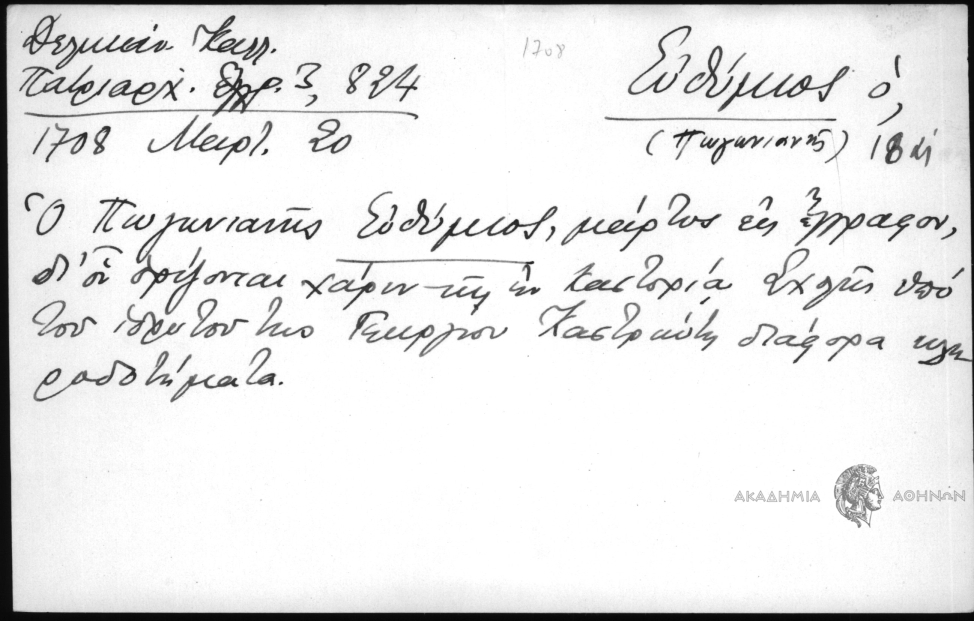 Δελικάν Καλλ.
Πατριαρχ. Ἔγγρ. 3, 824
1708 Μαρτ. 20
1708
Εὐθύμιος ὁ,
(Πωγωνιανῆς) 18
Ὁ Πωγωνιανῆς Εὐθύμιος, μάρτυς εἰς ἔγγραφον,
δι' οὗ ὁρίζονται χάριν τῆς ἐν Καστορίᾳ Σχολῆς ὑπὸ
τοῦ ἱδρυτοῦ της Γεωργίου Καστριώτη διάφορα κλη
ροδοτήματα.
ΑΚΑΔΗΜΙΑ ΑΘΗΝΩΝ